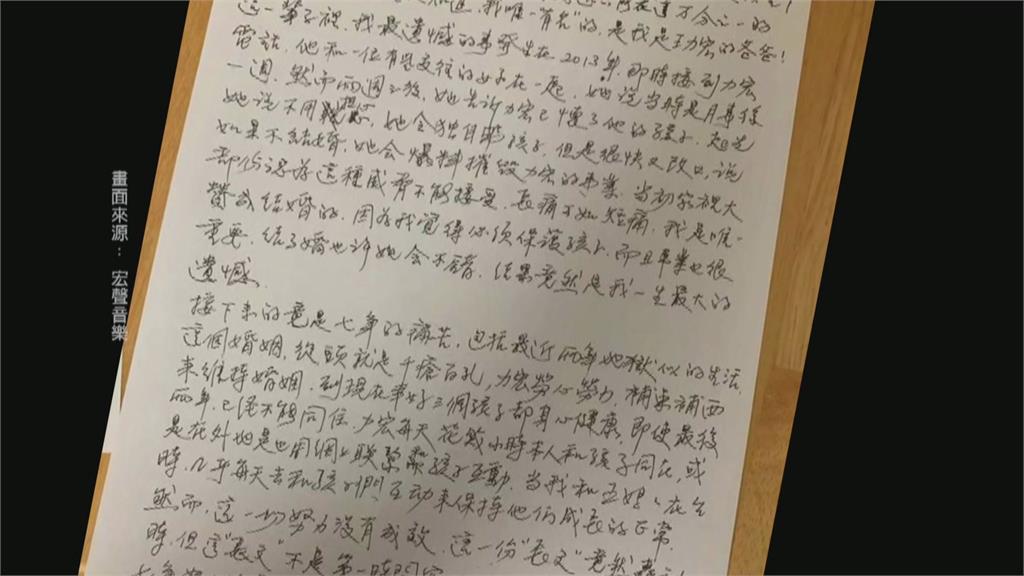 我唯一夠格的，是我是王力宏的爸爸！
這一輩子裡，我最遺憾的事發生在2013年，即時接到力宏
電話，他和一位有過交往的女子在一起，她說當時是月事後
一週，然而兩週之後，她告訴力宏已懷了他的孩子，起先
她說不用擔心，她會獨自帶孩子，但是很快又改口，說
如果不結婚，她會爆料摧毀力宏的事業，當初家裡大
部份認為這種威脅不能接受，長痛不如短痛，我是唯一
贊成結婚的，因為我覺得必須保護孩子，而且事業也很
重要，結了婚也許她會不錯，結果竟然是我一生最大的
遺憾。
接下來的竟是七年的痛苦，包括最近兩年地獄似的生活，
這個婚姻，從頭就是千瘡百孔，力宏勞心勞力，補東補西
來維持婚姻，到現在幸好三個孩子都身心健康，即使最後
兩年，已經不能同住，力宏每天花數小時本人和孩子同在，或
是在外地是也用網上聯繫和孩子互動，當我和王媽媽在台
時，几乎每天去和孩子們互动來保持他們成長的正常，
然而，這一切努力沒有成效，這一份"長文"竟然
時，但這"長文"不是第一時間
畫面來源：宏聲音樂